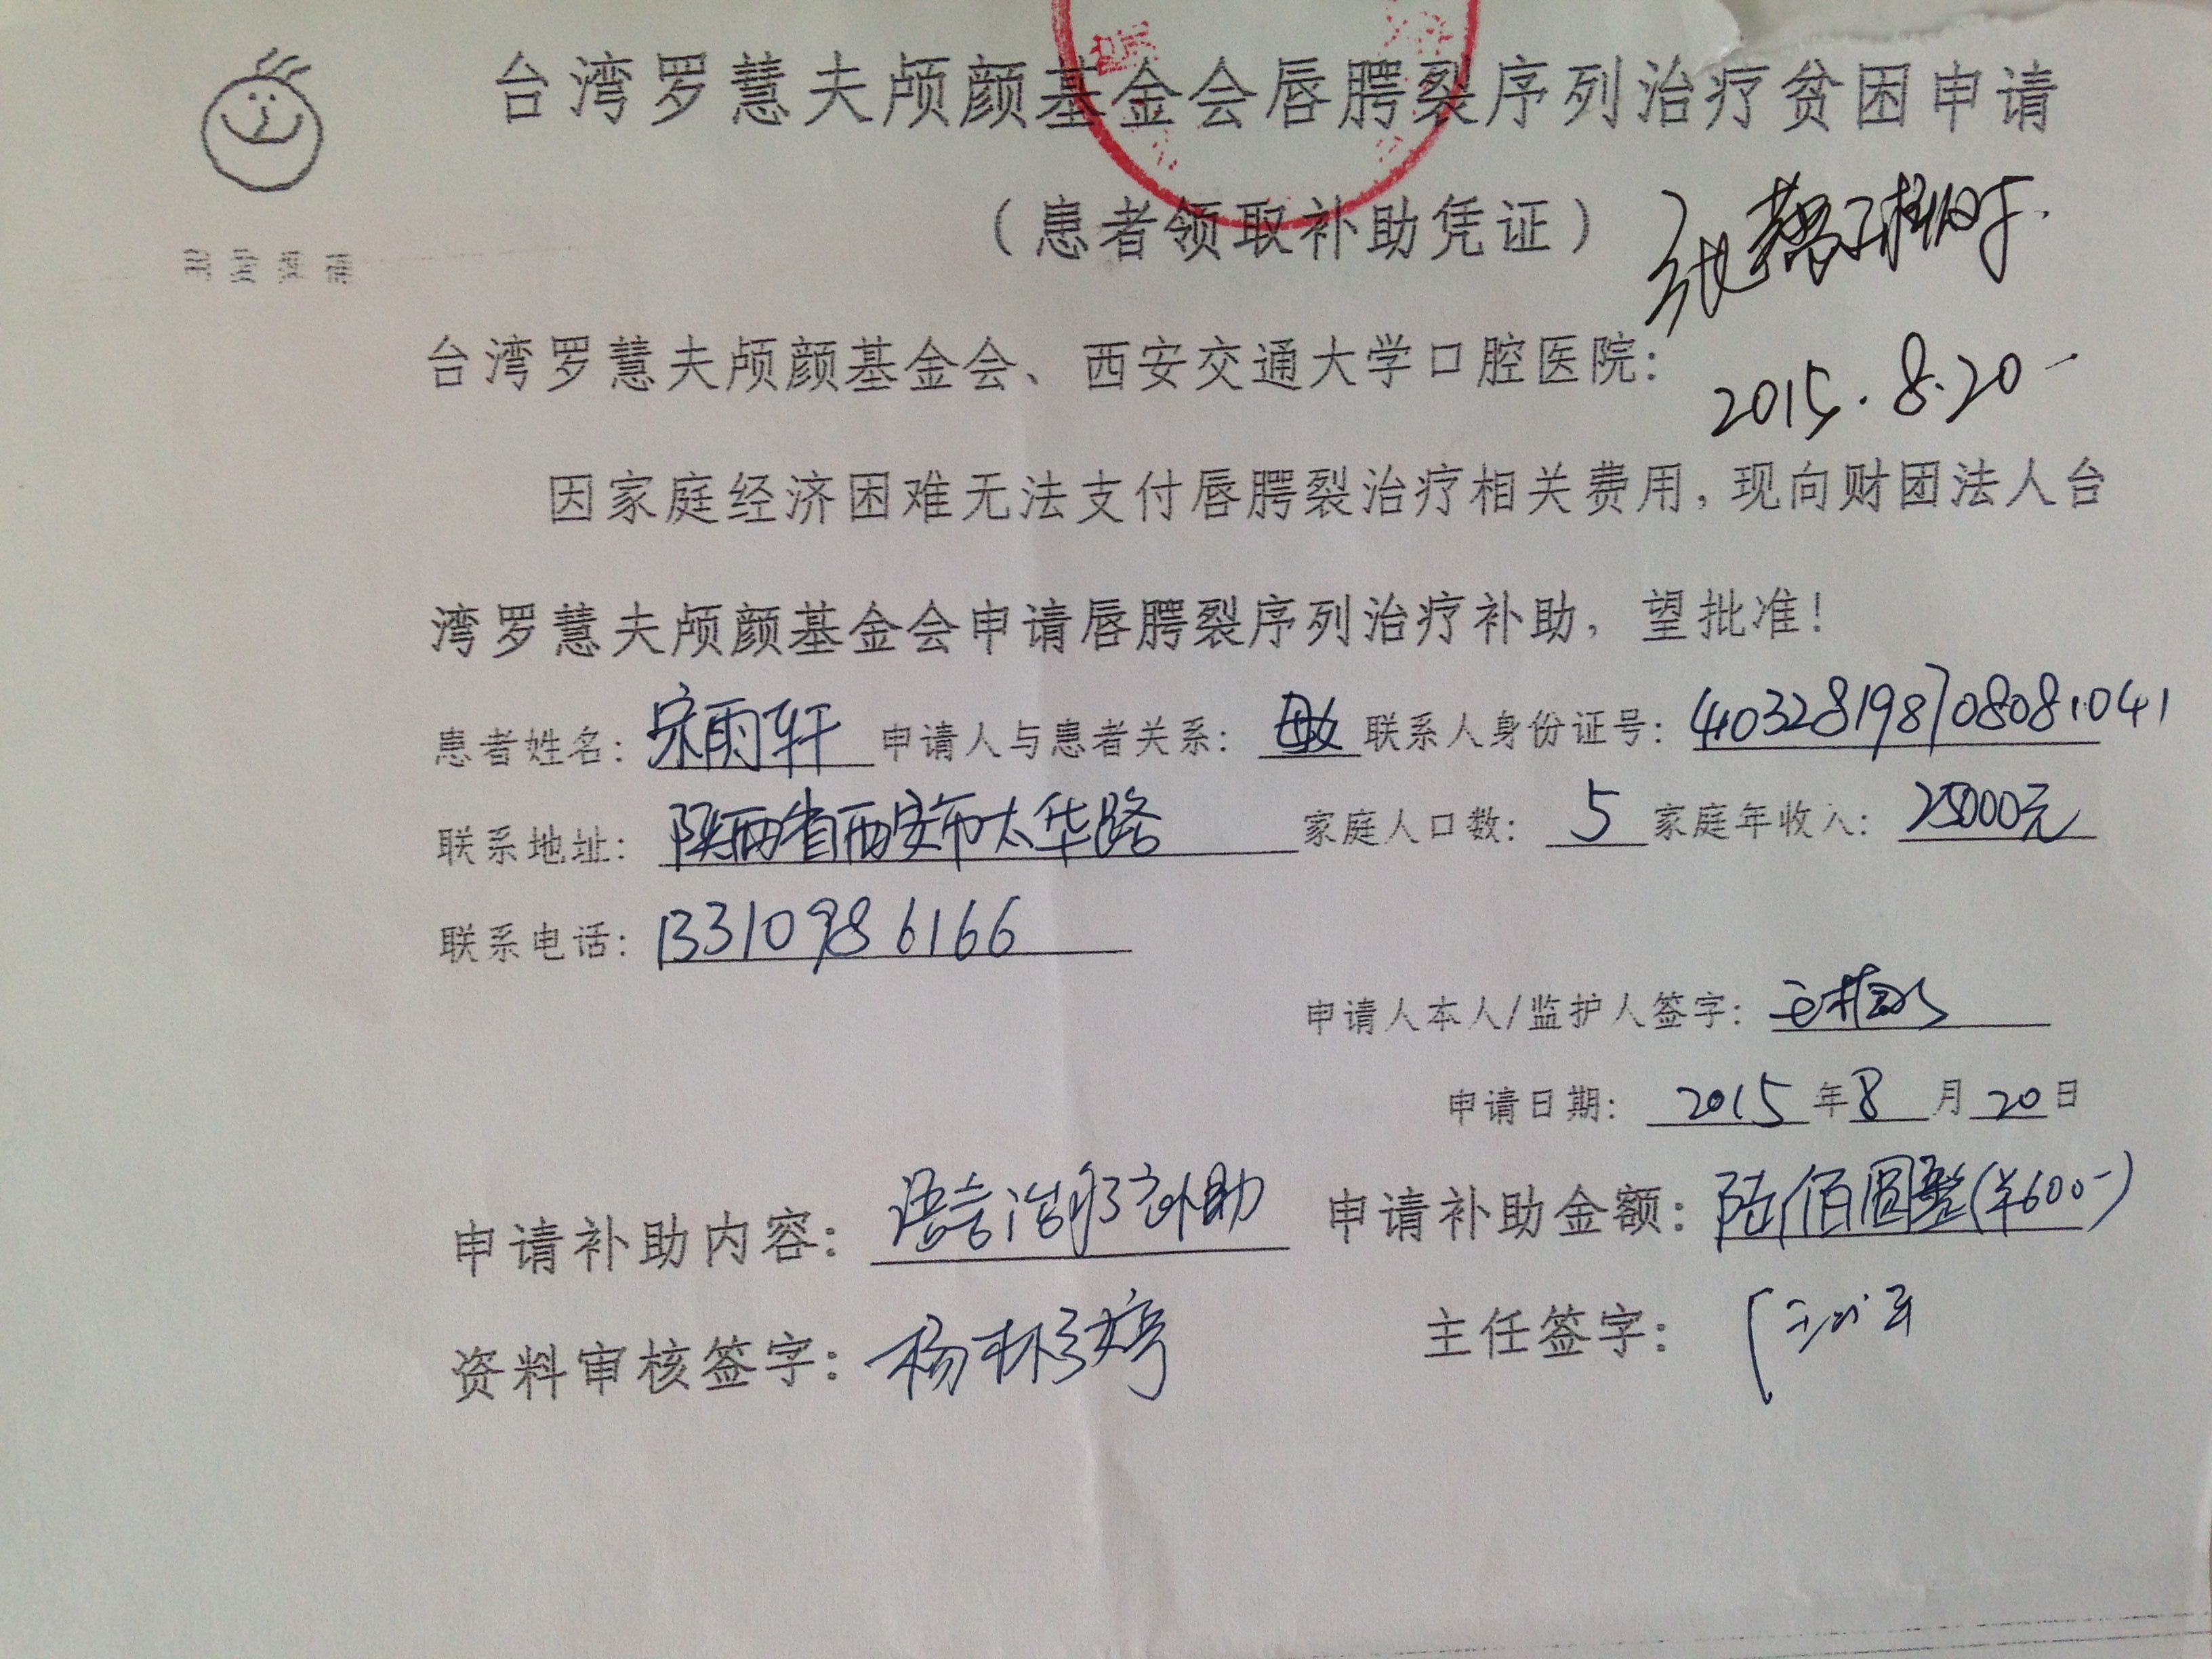 台湾罗慧夫颅颜基金会唇腭裂序列治疗贫困申请
（患者领取补助凭证）
台湾罗慧夫颅颜基金会、西安交通大学口腔医院：
2015.8.20
因家庭经济困难无法支付唇腭裂治疗相关费用，现向财团法人台
湾罗慧夫颅颜基金会申请唇腭裂序列治疗补助，望批准！
患者姓名：宋雨轩 申请人与患者关系：母女 联系人身份证号：410328198708081041
联系地址：陕西省西安市太华路 家庭人口数：5 家庭年收入：25000元
联系电话：13310986166
申请人本人/监护人签字：
申请日期：2015年8月20日
申请补助内容：语言治疗补助 申请补助金额：陆佰圆整（¥600-）
资料审核签字：杨 主任签字：